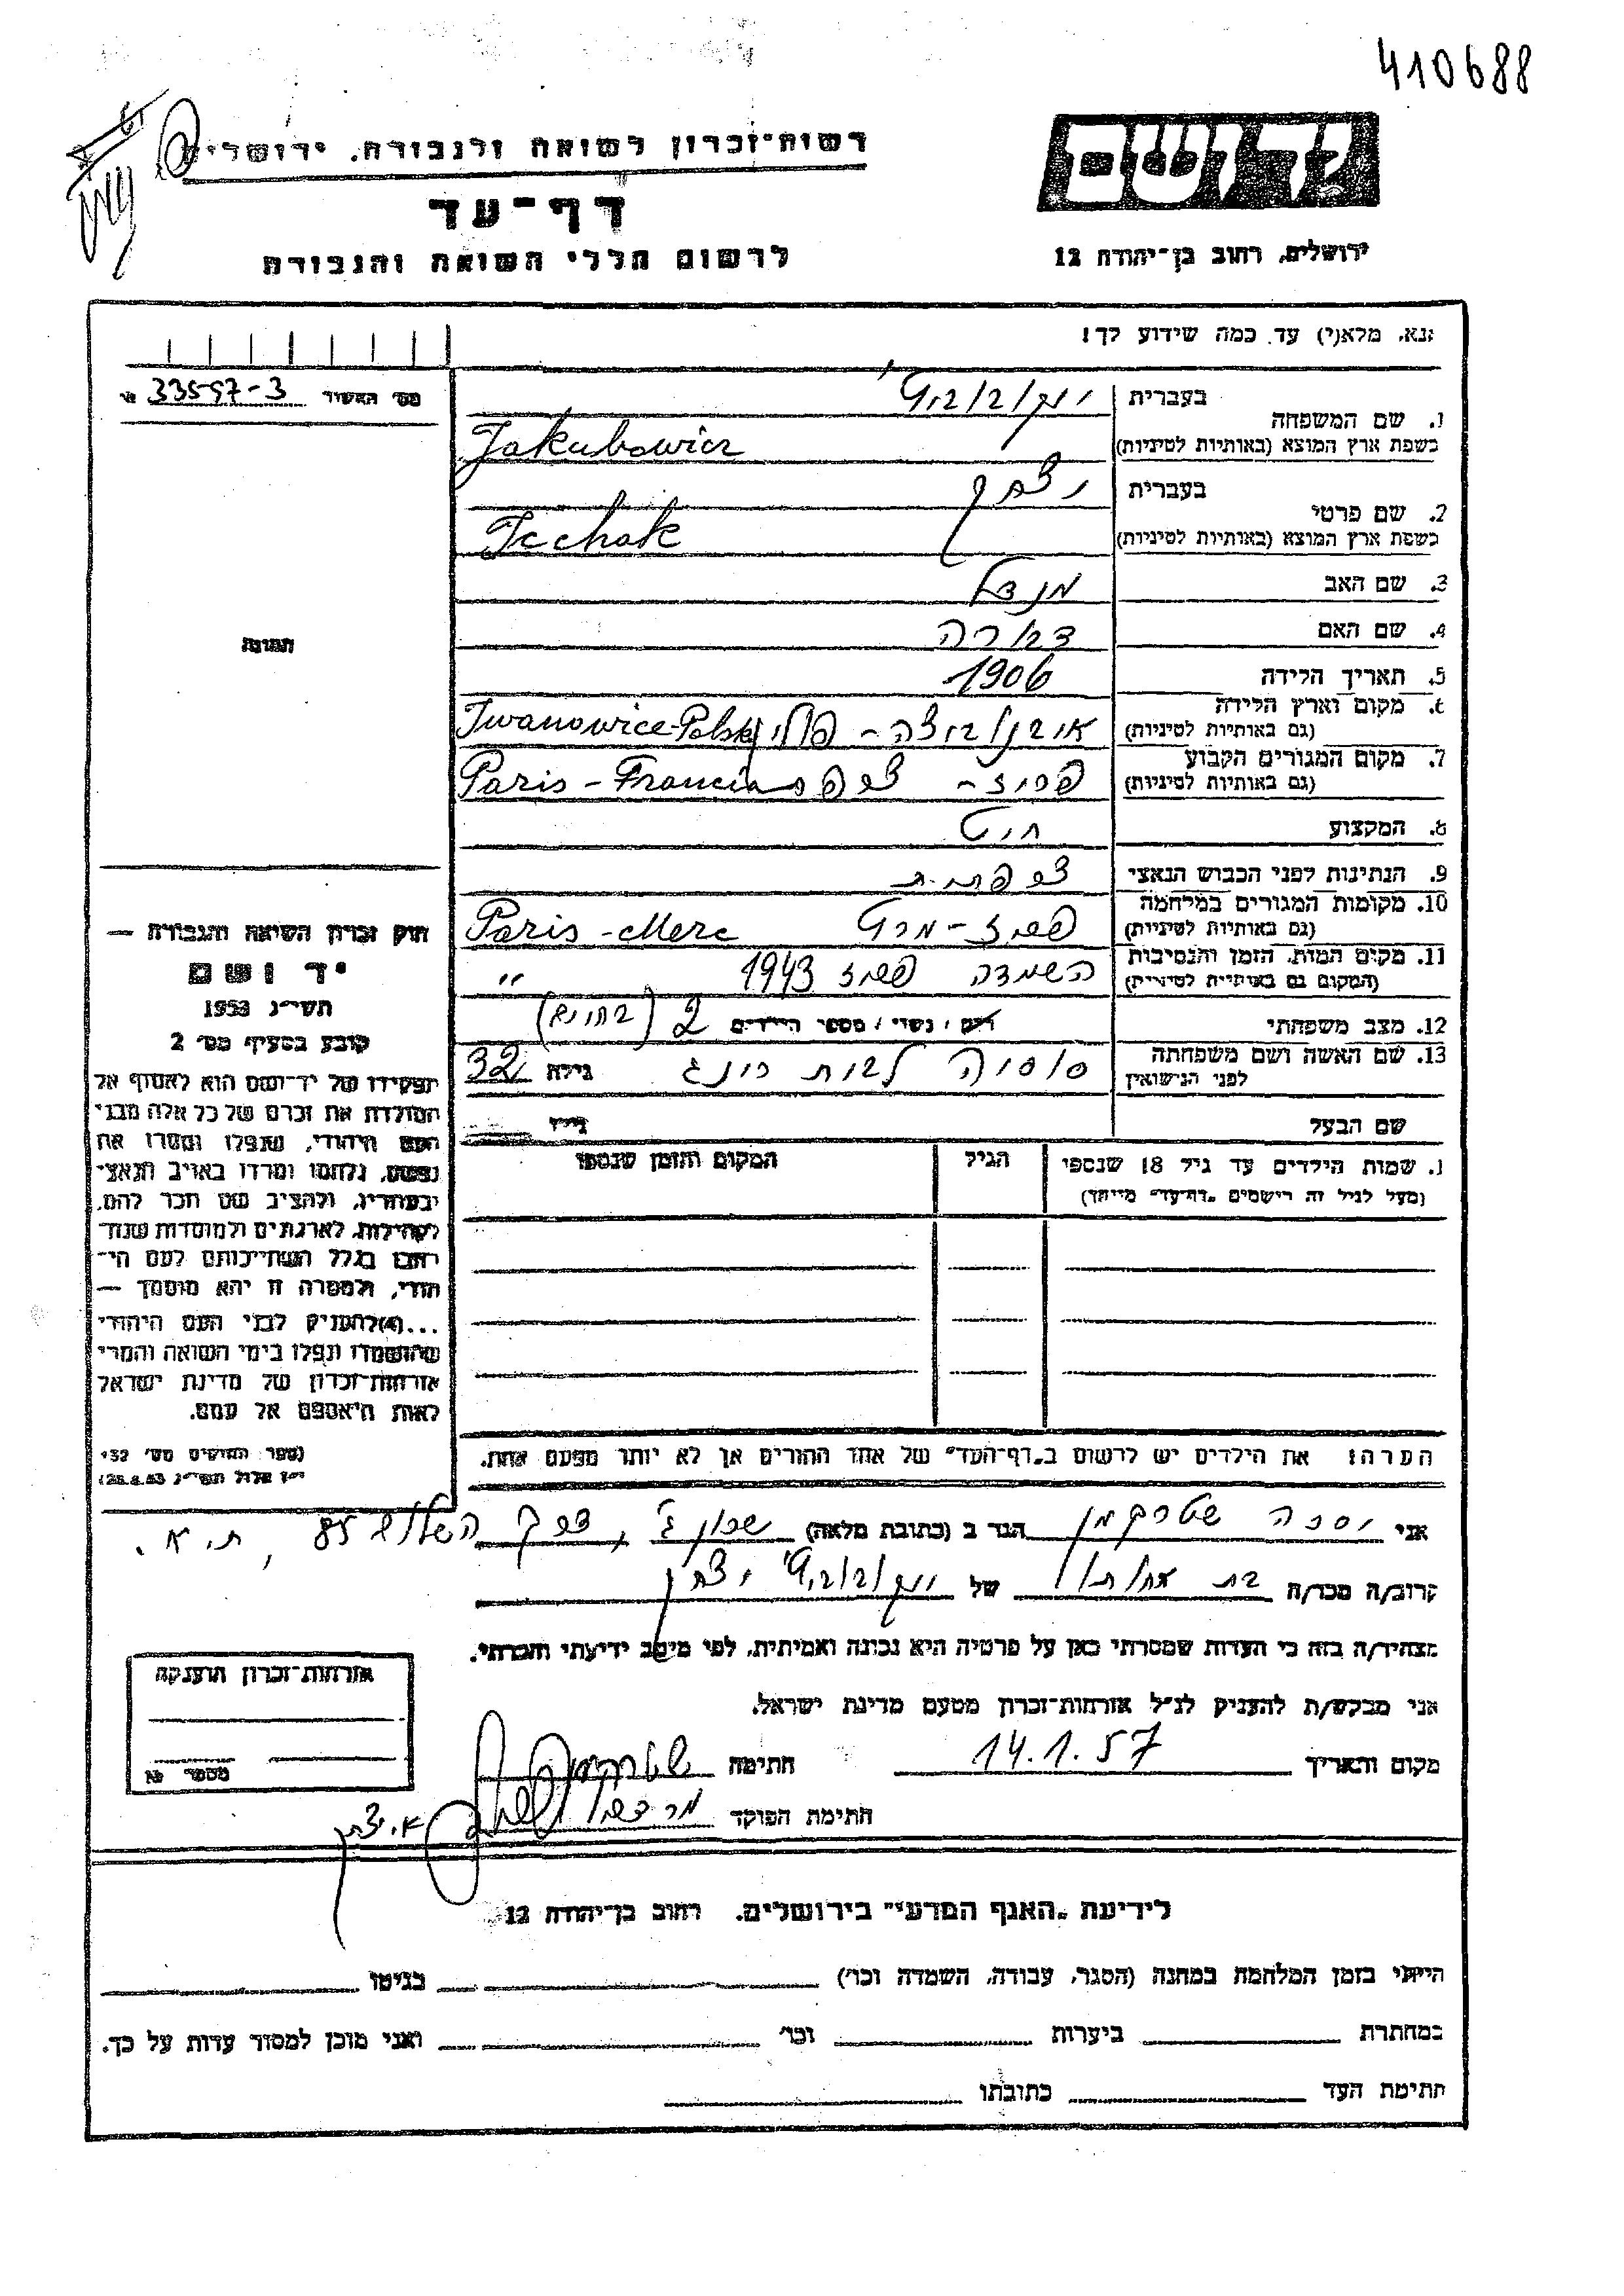 410688
יד ושם
רשות-זכרון לשואה ולגבורה, ירושלים
דף-עד
לרשום חללי השואה והגבורה
ירושלים, רחוב בן-יהודה 12
נא, מלא(י) עד כמה שידוע לך!
מס' האשור 33597-3 א
1. שם המשפחה
בעברית יעקובוביץ'
בשפת ארץ המוצא (באותיות לטיניות) Jakubowicz
2. שם פרטי
בעברית יצחק
בשפת ארץ המוצא (באותיות לטיניות) Icchak
3. שם האב מנדל
4. שם האם דבורה
5. תאריך הלידה 1906
6. מקום וארץ הלידה
(גם באותיות לטיניות) Iwanowice-Polski
7. מקום המגורים הקבוע
(גם באותיות לטיניות) פריז - צרפת Paris-Francia
8. המקצוע חיט
9. הנתינות לפני הכבוש הנאצי צרפתית
10. מקומות המגורים במלחמה
(גם באותיות לטיניות) Paris -
11. מקום המות, הזמן והנסיבות
(המקום גם באותיות לטיניות) השמדה 1943 "
12. מצב משפחתי רווק / נשוי / מספר הילדים 2
13. שם האשה ושם משפחתה
לפני הנישואין לבית גילה 32
שם הבעל גילו
תמונה
חוק זכרון השואה והגבורה —
יד ושם
תשי"ג 1953
קובע בסעיף מס' 2
תפקידו של יד-ושם הוא לאסוף אל
המולדת את זכרם של כל אלה מבני
העם היהודי, שנפלו ומסרו את
נפשם, נלחמו ומרדו באויב הנאצי
ובעוזריו, ולהציב שם וזכר להם,
לקהילות, לארגונים ולמוסדות שנח-
רבו בגלל השתייכותם לעם הי-
הודי, ולמטרה זו יהא מוסמך —
...(4) להעניק לבני העם היהודי
שהושמדו ונפלו בימי השואה והמרי
אזרחות-זכרון של מדינת ישראל
לאות היאספם אל עמם.
(ספר החוקים מס' 132
י"ז אלול תשי"ג 28.8.53)
שמות הילדים עד גיל 18 שנספו
(מעל לגיל זה רושמים "דף-עד" מיוחד)
הגיל
המקום והזמן שנספו
הערה: את הילדים יש לרשום ב"דף-העד" של אחד ההורים אך לא יותר מפעם אחת.
אני שטרקמן הגר ב (כתובת מלאה) שכון ג', דרך השלום 85, ת.א.
קרוב/ה מכר/ה בת אחותו של יעקובוביץ' יצחק
מצהיר/ה בזה כי העדות שמסרתי כאן על פרטיה היא נכונה ואמיתית, לפי מיטב ידיעתי והכרתי.
אני מבקש/ת להעניק לנ"ל אזרחות-זכרון מטעם מדינת ישראל.
מקום ותאריך 14.1.57 חתימה שטרקמן
חתימת הפוקד
אזרחות-זכרון הוענקה
מספר א
לידיעת "האגף המדעי" בירושלים, רחוב בן-יהודה 12
הייתי בזמן המלחמה במחנה (הסגר, עבודה, השמדה וכו') בגיטו
במחתרת ביערות וכו' ואני מוכן למסור עדות על כך.
חתימת העד כתובתו